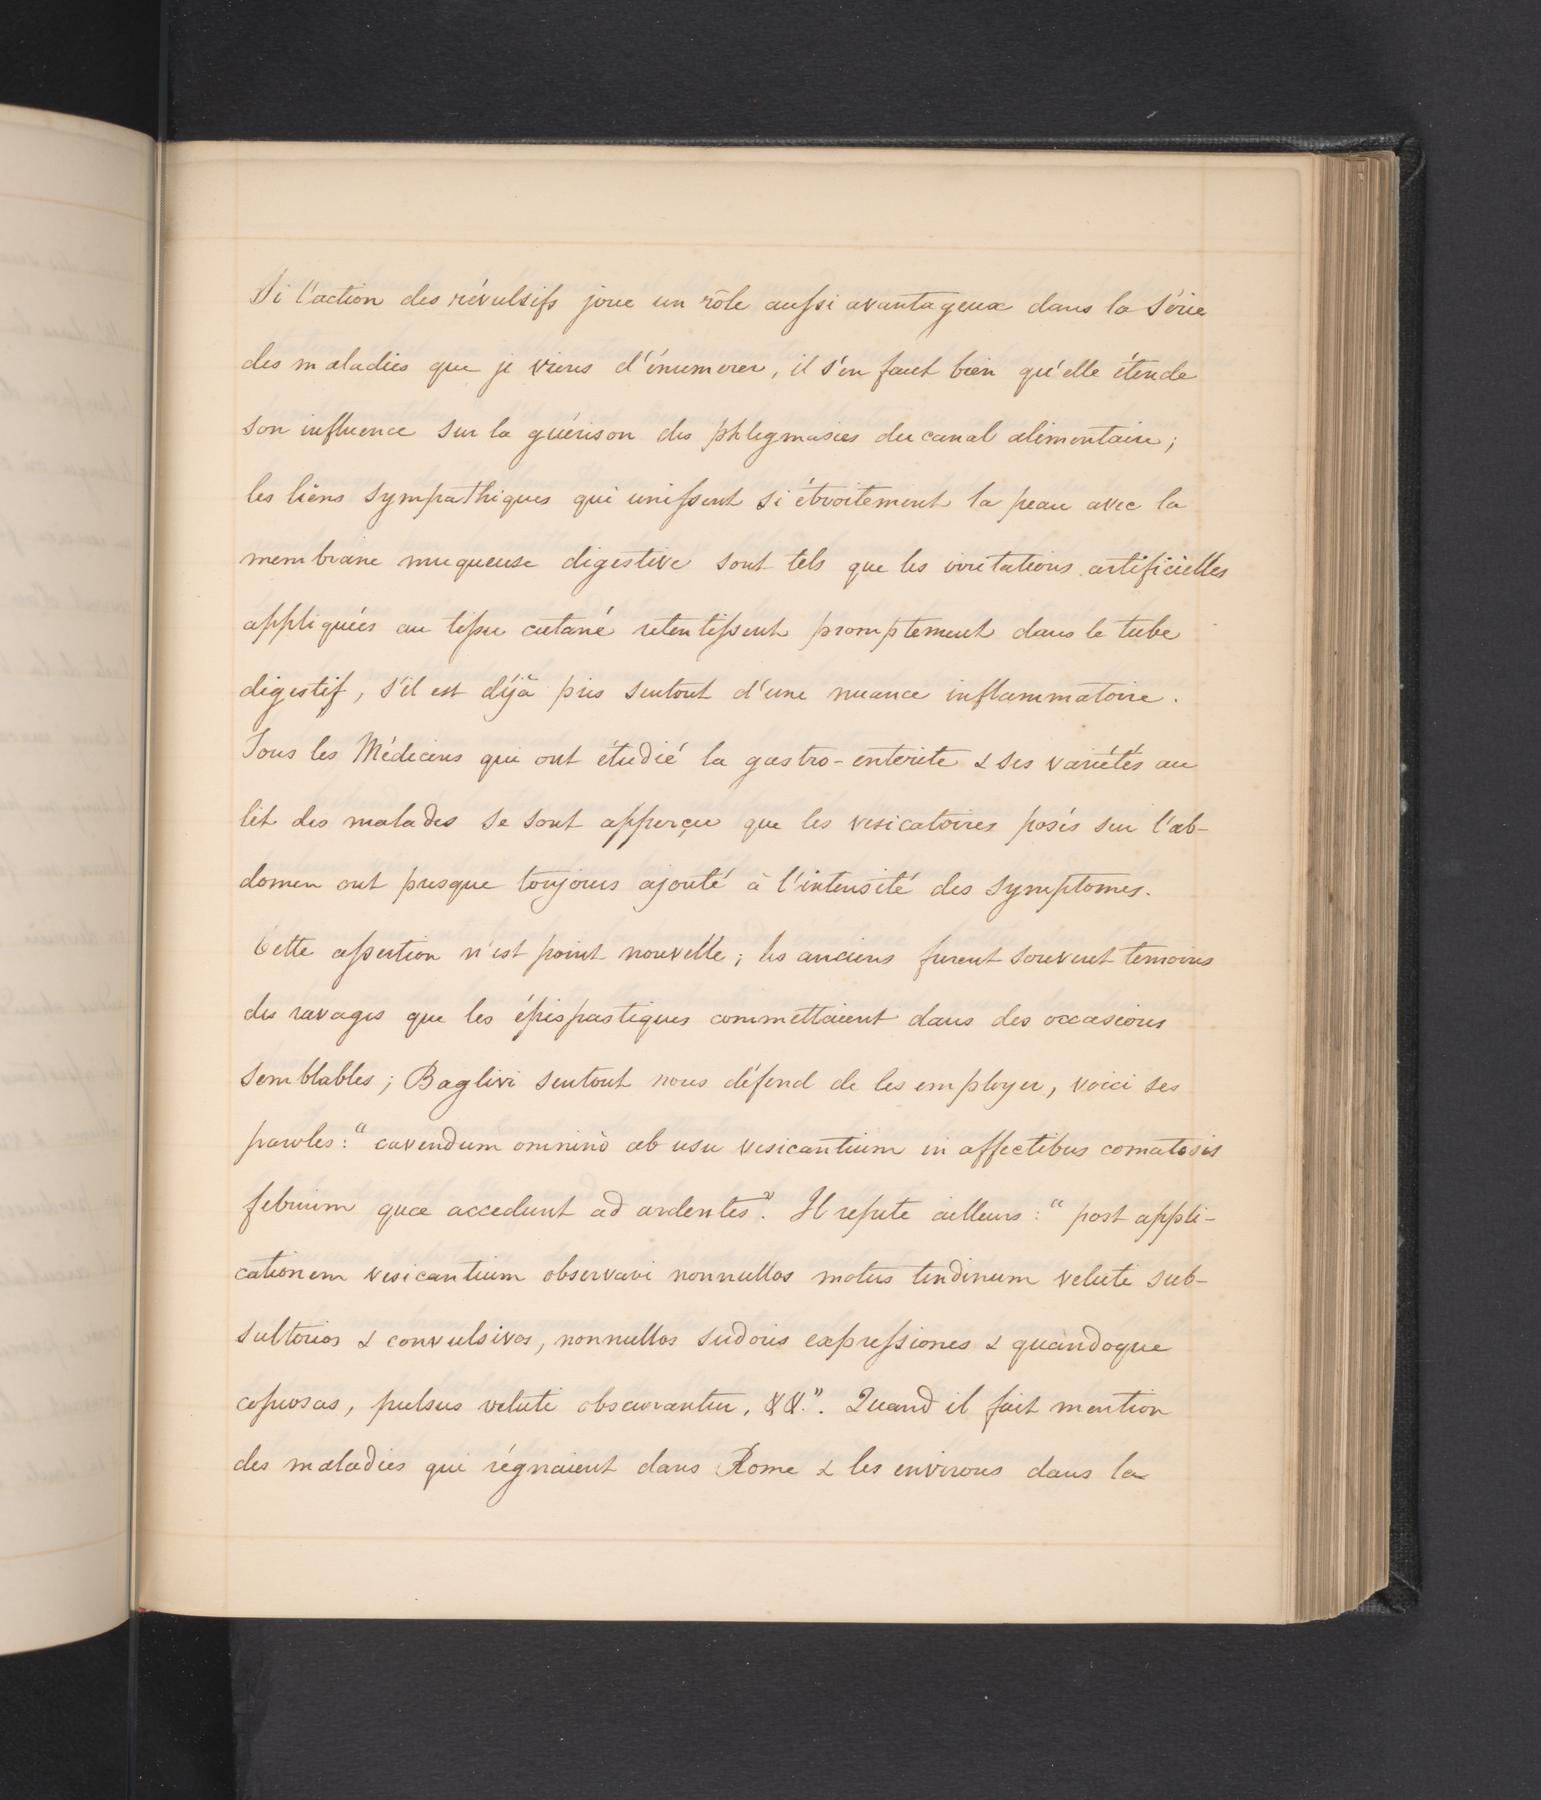 Si l'action des révulsifs joue un rôle aussi avantageux dans la série
des maladies que je viens d'énumerer, il s'en faut bien qu'elle étende
son influence sur la guérison des phlegmasies du canal alimentaire;
les liens sympathiques qui unissent si étroitement la peau avec la
membrane muqueuse digestive sont tels que les irritations artificielles
appliquées au tissu cutané retentissent promptement dans le tube
digestif, s'il est déjà pris surtout d'une nuance inflammatoire.
Tous les Médecins qui ont étudié la gastro-enterite & ses variétés au
lit des malades se sont apperçu que les vesicatoires posés sur l'ab-
domen ont presque toujours ajouté à l'intensité des symptomes.
Cette assertion n'est point nouvelle; les anciens furent souvent temoins
des ravages que les épispastiques commettaient dans des occasions
semblables; Baglivi surtout nous défend de les employer, voici ses
paroles: "cavendum omninò ab usu vesicantium in affectibus comatosis
febrium quæ accedunt ad ardentes". Il repete ailleurs: "post appli-
cationem vesicantium observavi nonnullos motus tendinum veluti sub-
sultorios & convulsivos, nonnullas sudoris expressiones & quandoque
copiosas, pulsus veluti obscurantur, &&.". Quand il fait mention
des maladies qui régnaient dans Rome & les environs dans la